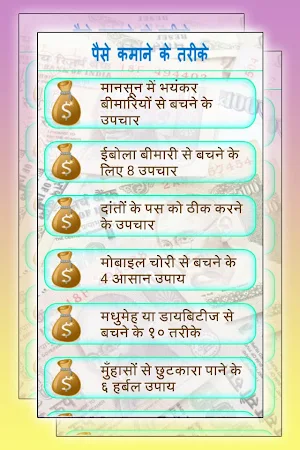 पैसे कमाने के तरीके
मानसून में भयंकर
बीमारियों से बचने के
उपचार
ईबोला बीमारी से बचने के
लिए 8 उपचार
दांतों के पस को ठीक करने
के उपचार
मोबाइल चोरी से बचने के
4 आसान उपाय
मधुमेह या डायबिटीज से
बचने के १० तरीके
मुँहासों से छुटकारा पाने के
६ हर्बल उपाय